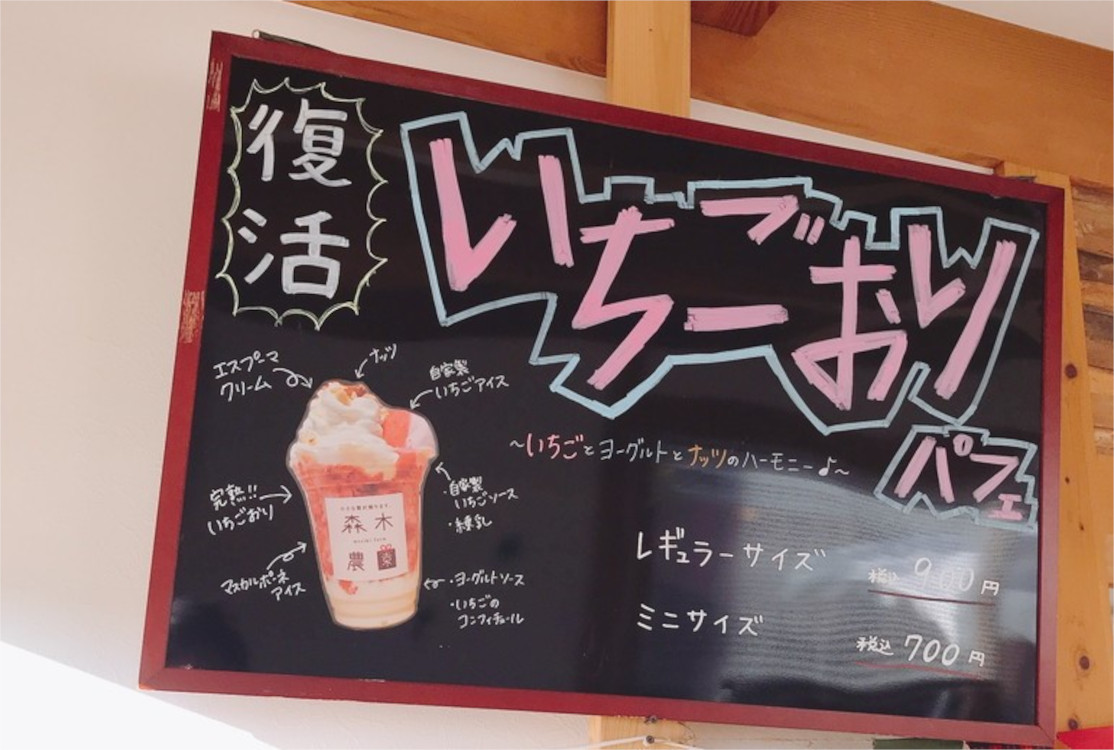 復
活
いちごおり
パフェ
～いちごとヨーグルトとナッツのハーモニー♪～
エスプーマ
クリーム
ナッツ
自家製
いちごアイス
完熟!!
いちごおり
・自家製
いちごソース
・練乳
マスカルポーネ
アイス
・ヨーグルトソース
・いちごの
コンフィチュール
森木
農園
レギュラーサイズ
税込 900円
ミニサイズ
税込 700円